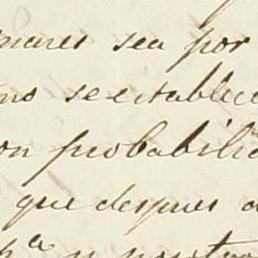 mares sea por
no se establec
on probabilid
que despues a